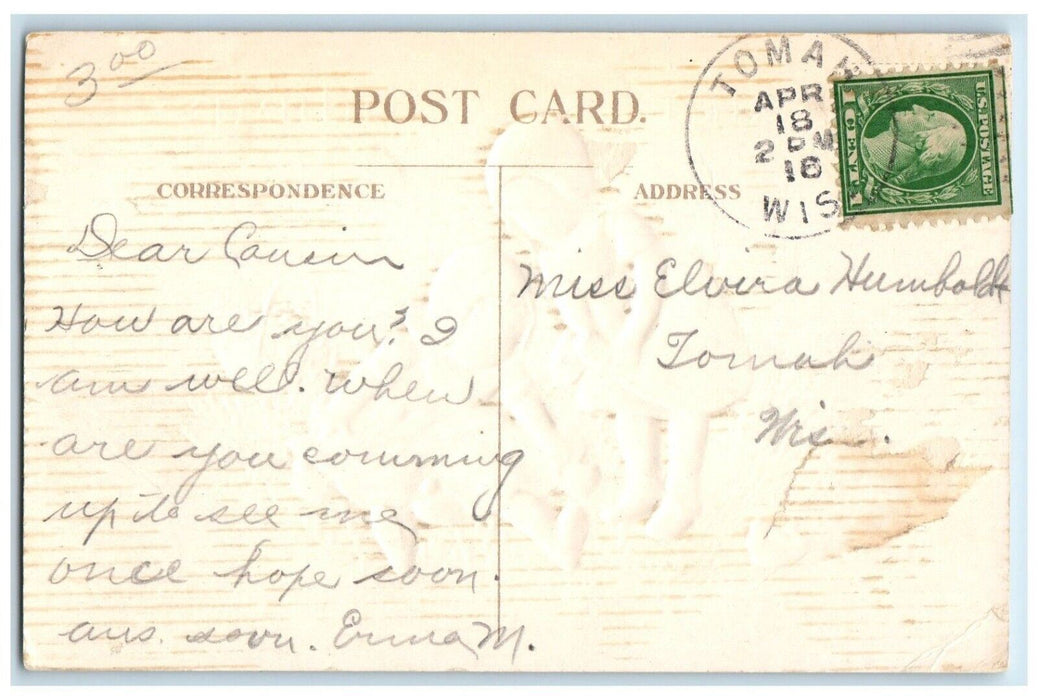 3.00
POST CARD.
TOMAH
APR
18
2 PM
16
WIS
U.S. POSTAGE
1 CENT 1
CORRESPONDENCE
ADDRESS
Dear Cousin
How are you? I
am well. when
are you comming
up to see me
once hope soon.
ans. soon. Erma M.
Miss Elvira Humboldt
Tomah
Wis.